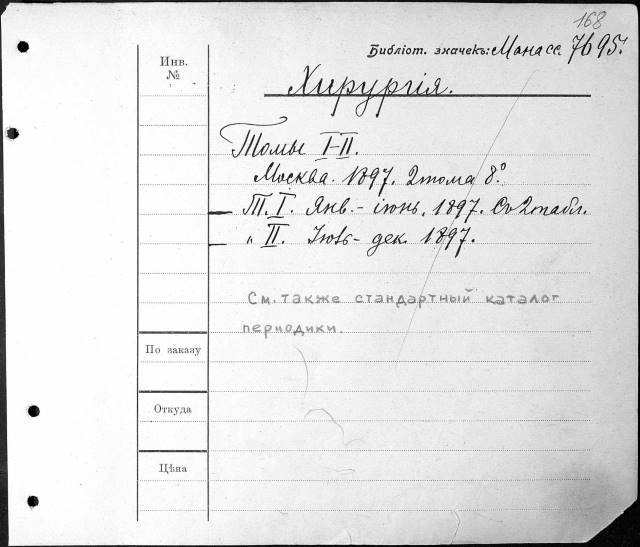 168
Библіот. значекъ: Монасс 7695.
Инв.
№
Хирургія.
Томы I-II.
Москва. 1897. 2 тома 8°
Т. I. Янв. - іюнь. 1897. Съ 2 табл.
" II. Іюль - дек. 1897.
См. также стандартный каталог
периодики.
По заказу
Откуда
Цѣна